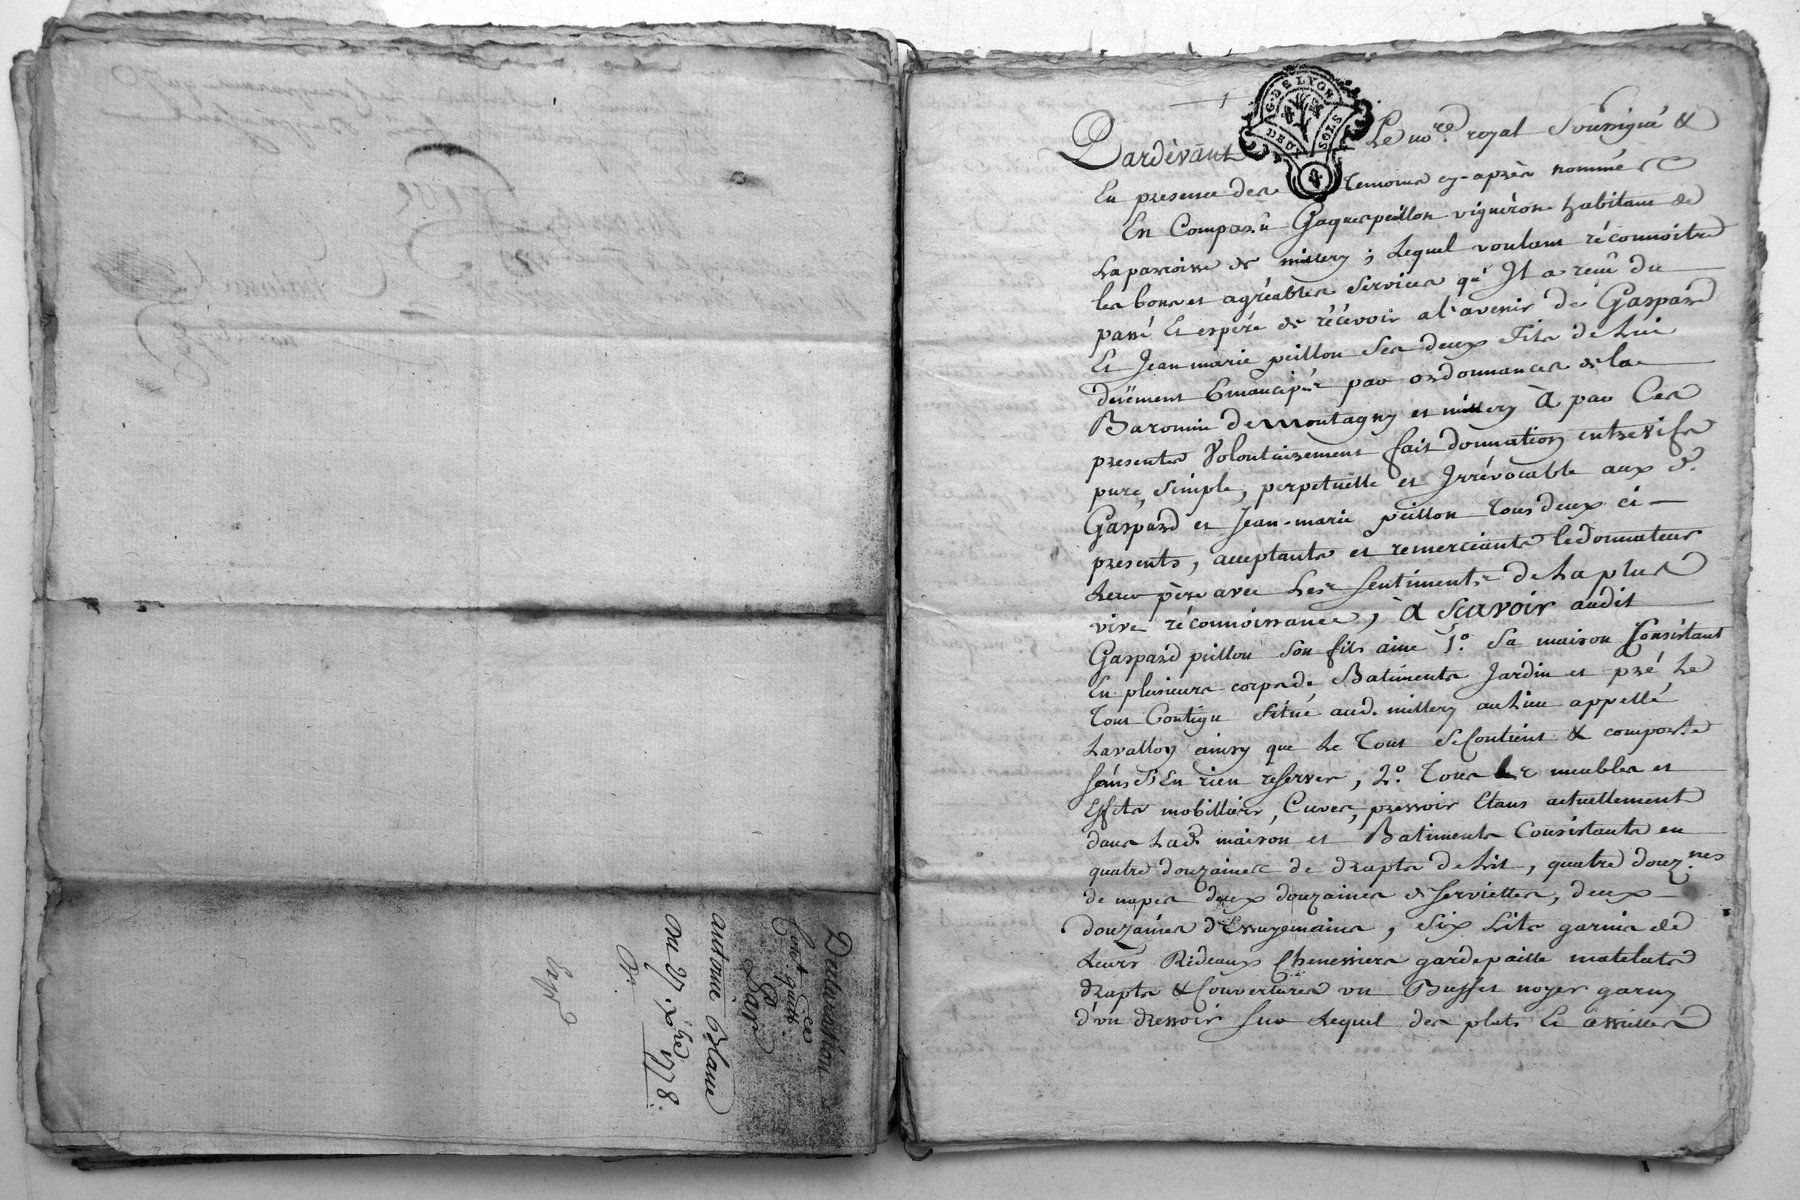 Declaration
antoine Blanc
du 27. Xbre 1778.
G. DE LYON
DEUX SOLS
Pardèvant Le no.re royal soussigné &
En presence des temoins cy-après nommés
En Comparu Jaques peillon vignèron habitant de
La parroisse de millery ; Lequel voulant réconnoitre
les bons et agréables services qu'Il a reçu du
passé Et espére de récevoir a l'avenir de Gaspard
Et Jean marie peillon Ses deux Fils de Lui
duëment Emancipés par ordonnances de la
Baronnie de Montagny et millery A par Ces
presentes Volontairement fait donnation entrevifs
pure, simple, perpetuelle et Irrévocable aux d.
Gaspard et Jean-marie peillon Tous deux ci
presents, acceptants et remerciants le donnateur
Leur père avec Les sentiments de La plus
vive réconnoissance, A Scavoir audit
Gaspard peillon Son fils ainé 1.° Sa maison Consistant
En plusieurs corps de Batiments Jardin et pré Le
Tout Contigu Situé aud. millery au Lieu appellé
Lavallon ainsy que Le Tout se Contient & comporte
sans s'En rien reserver, 2.° Tous Les meubles et
Effets mobilliers, Cuves, pressoir Etans actuellement
dans Lad. maison et Batiments Consistants en
quatre douzaines de draps de Lit, quatre douz.nes
de napes deux douzaines de serviettes, deux
douzaines d'Essuyemains, Six Lits garnis de
Leurs Rideaux Chenessiers gardepaille matelats
draps & Couvertures un Buffet noyer garny
d'un dressoir sur Lequel des plats Et assiettes